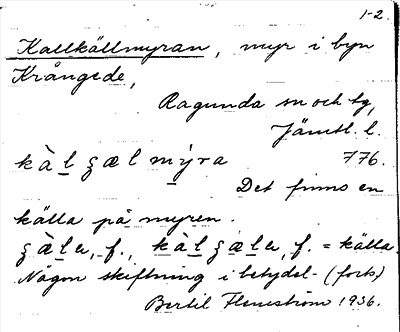 1-2.
Kallkällmyran, myr i byn
Krångede,
Ragunda sn och tg,
Jämtl. l.
kàl ȿæl mýra 776.
Det finns en
källa på myren.
ȿæ̀lɐ, f., kàlȿælɐ, f. = källa.
Någon skiftning i betydel- (forts)
Bertil Flemström 1936.